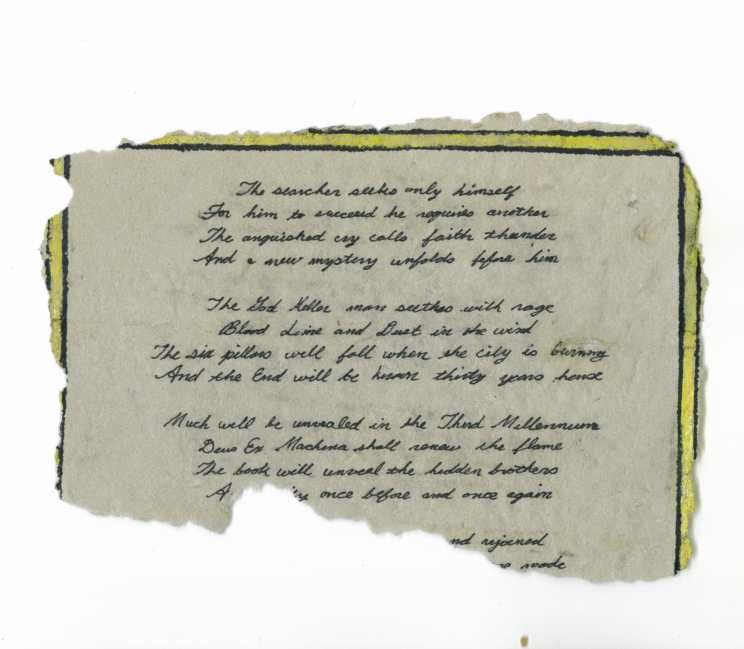 The searcher seeks only himself
For him to succeed he requires another
The anguished cry calls faith thunder
And a new mystery unfolds before him
The God Killer man seethes with rage
Blood Lime and Dust in the wind
The six pillars will fall when the city is burning
And the End will be known thirty years hence
Much will be unvealed in the Third Millennium
Deus Ex Machina shall renew the flame
The book will unveal the hidden brothers
A once before and once again
nd rejoined
made